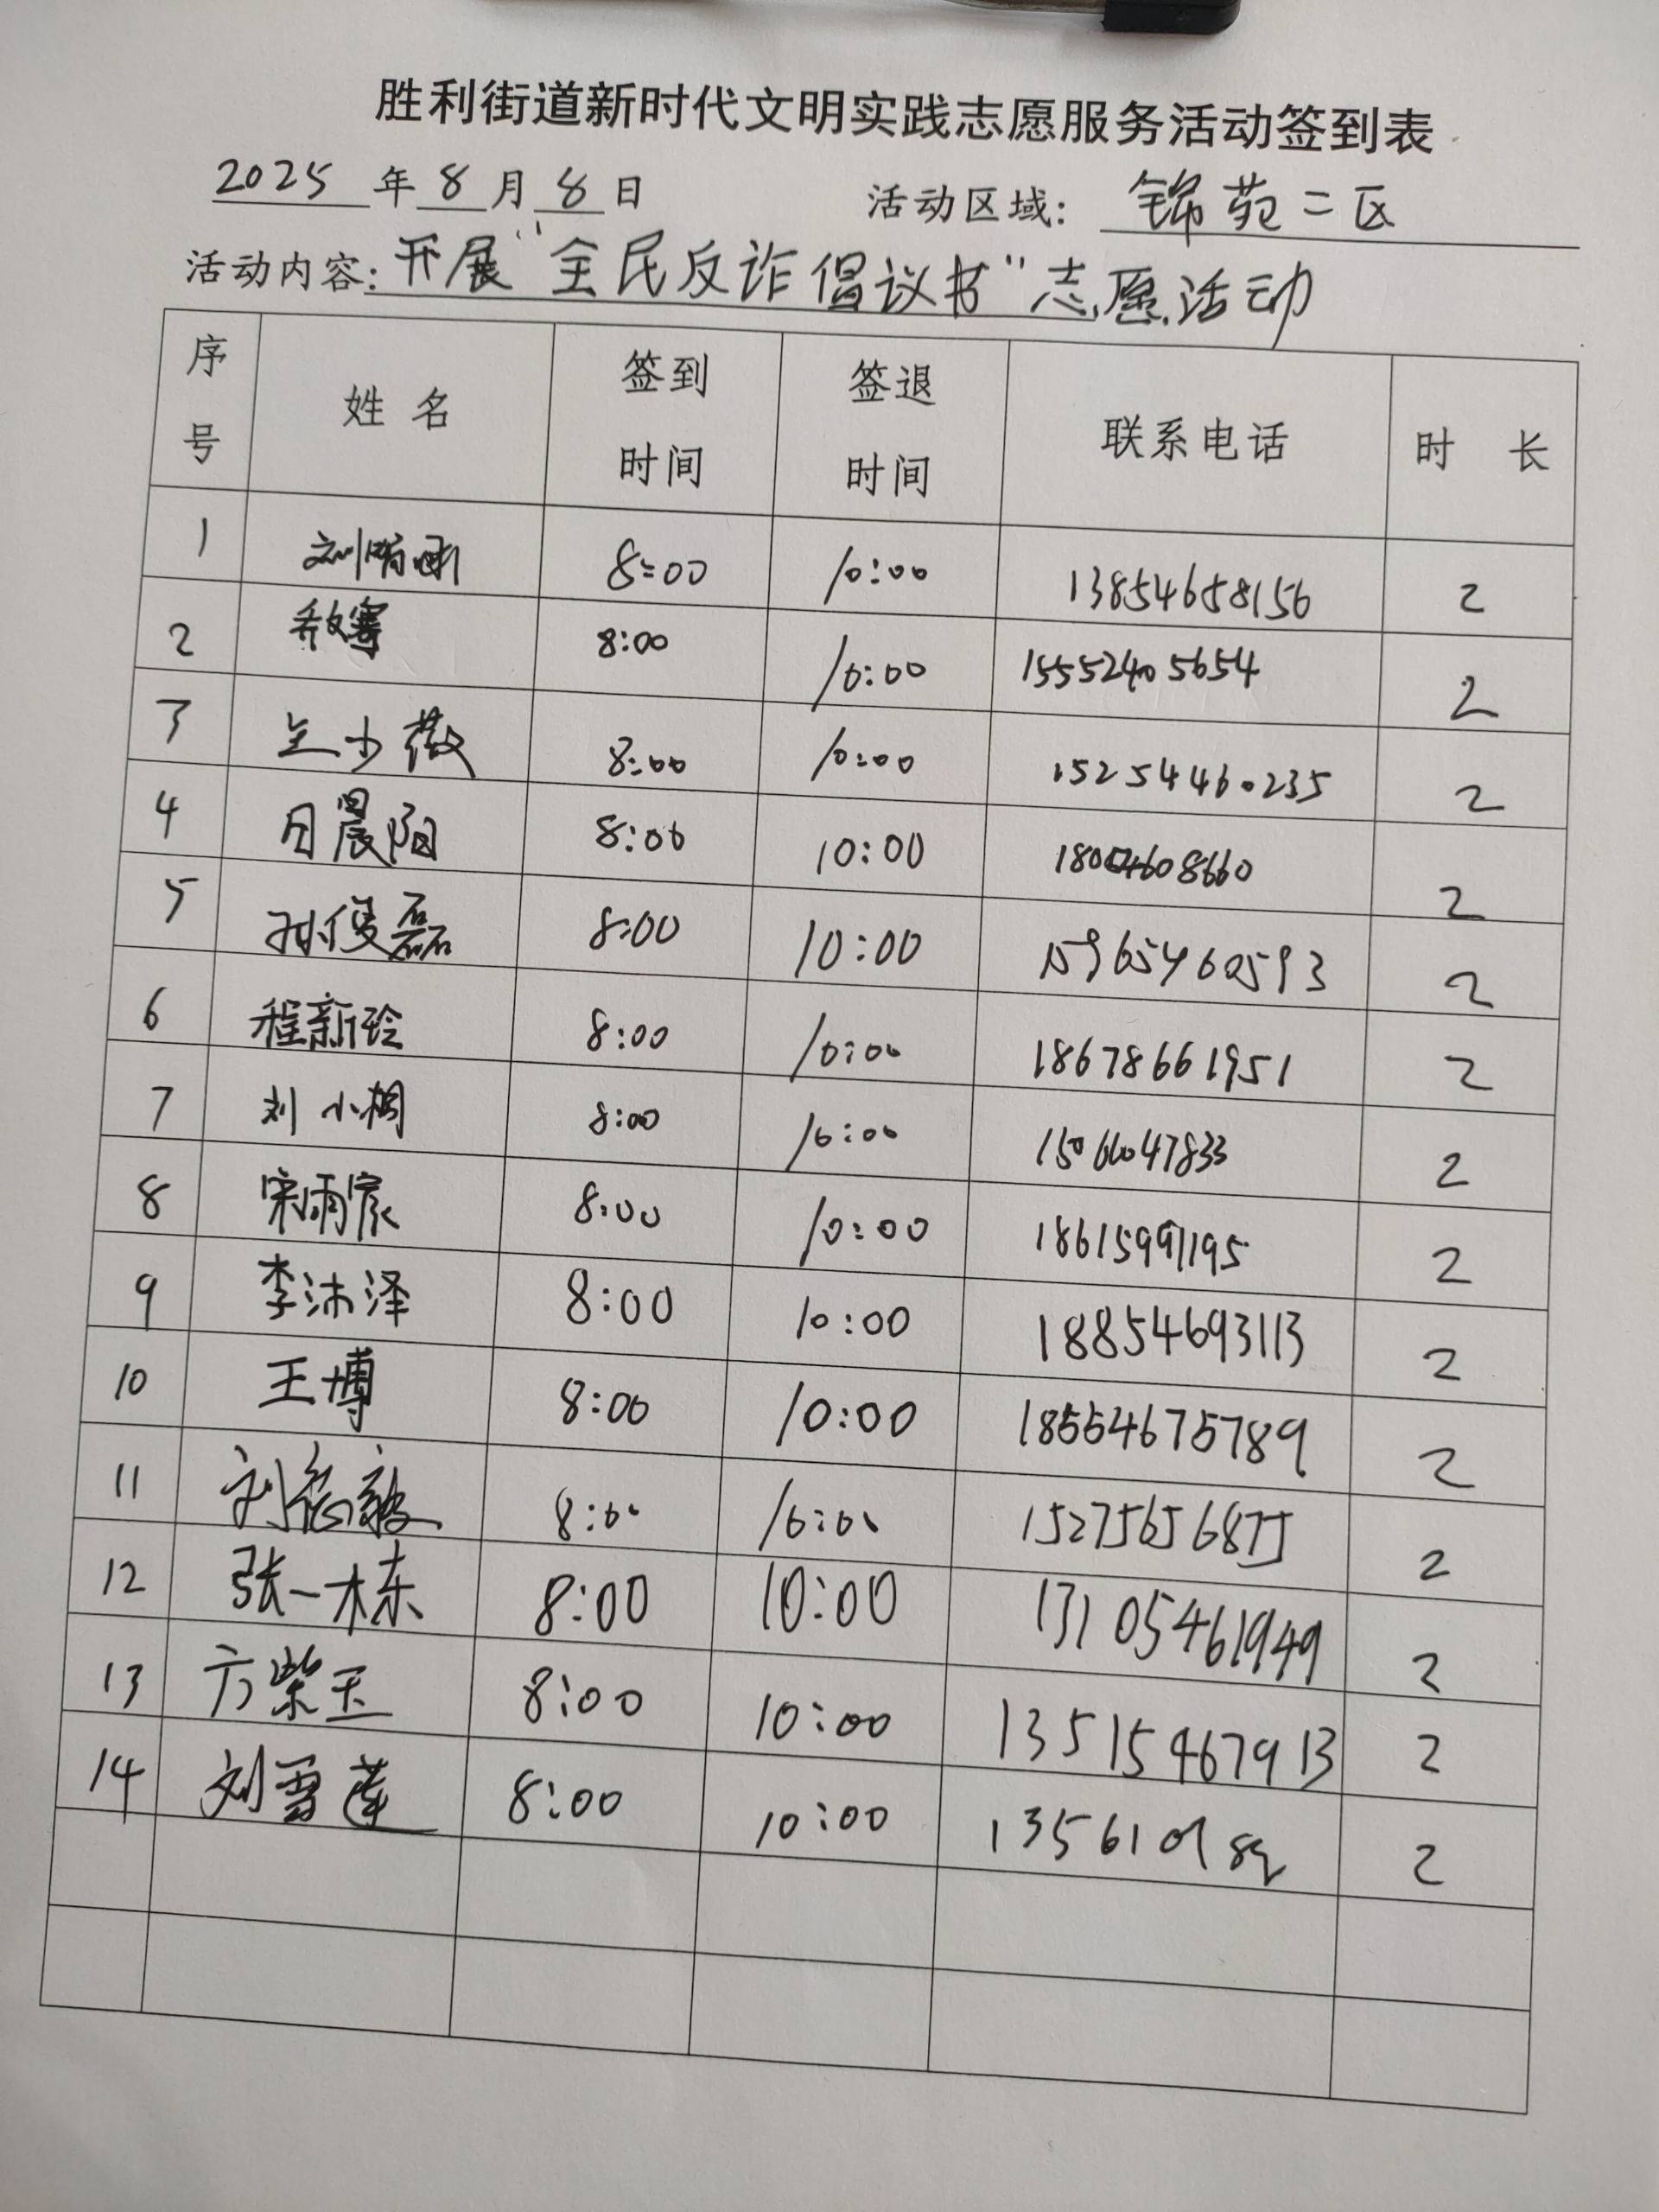 胜利街道新时代文明实践志愿服务活动签到表
2025 年 8 月 8 日 活动区域: 锦苑二区
活动内容: 开展“全民反诈倡议书”志愿活动
序号 姓名 签到时间 签退时间 联系电话 时 长
1 8:00 10:00 13854658156 2
2 8:00 10:00 15552405654 2
3 8:00 10:00 15254460235 2
4 8:00 10:00 2
5 孙俊磊 8:00 10:00 15965460593 2
6 程新玲 8:00 10:00 18678661951 2
7 刘小桐 8:00 10:00 15066047833 2
8 宋雨宸 8:00 10:00 18615991195 2
9 李沐泽 8:00 10:00 18854693113 2
10 王博 8:00 10:00 18554675789 2
11 8:00 10:00 15275656875 2
12 张一栋 8:00 10:00 13105461949 2
13 方紫玉 8:00 10:00 13515467913 2
14 刘雪莲 8:00 10:00 2